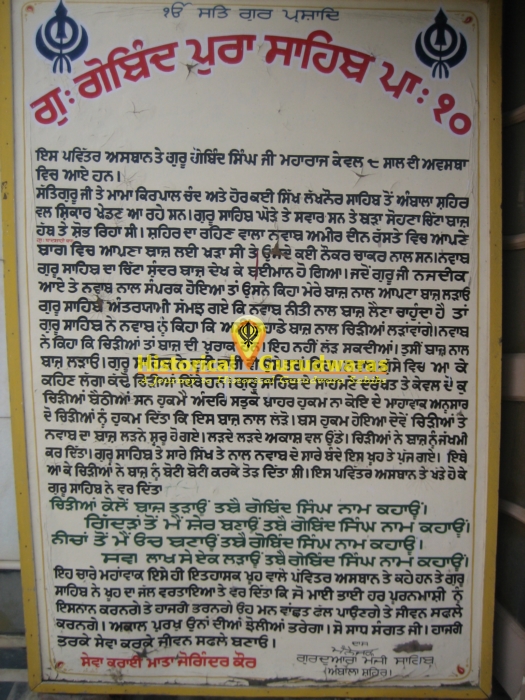 ੴ ਸਤਿ ਗੁਰ ਪ੍ਰਸਾਦਿ
ਗੁ: ਗੋਬਿੰਦ ਪੁਰਾ ਸਾਹਿਬ ਪਾ: ੧੦
ਇਸ ਪਵਿੱਤਰ ਅਸਥਾਨ ਤੇ ਗੁਰੂ ਗੋਬਿੰਦ ਸਿੰਘ ਜੀ ਮਹਾਰਾਜ ਕੇਵਲ ੮ ਸਾਲ ਦੀ ਅਵਸਥਾ
ਵਿਚ ਆਏ ਹਨ।
ਸਤਿਗੁਰੂ ਜੀ ਤੇ ਮਾਮਾ ਕਿਰਪਾਲ ਚੰਦ ਅਤੇ ਹੋਰ ਕਈ ਸਿੱਖ ਲੱਖਨੌਰ ਸਾਹਿਬ ਤੋਂ ਅੰਬਾਲਾ ਸ਼ਹਿਰ
ਵਲ ਸ਼ਿਕਾਰ ਖੇਡਣ ਆ ਰਹੇ ਸਨ। ਗੁਰੂ ਸਾਹਿਬ ਘੋੜੇ ਤੇ ਸਵਾਰ ਸਨ ਤੇ ਬੜਾ ਸੋਹਣਾ ਚਿੱਟਾ ਬਾਜ਼
ਹੱਥ ਤੇ ਸ਼ੋਭ ਰਿਹਾ ਸੀ। ਸ਼ਹਿਰ ਦਾ ਰਹਿਣ ਵਾਲਾ ਨਵਾਬ ਅਮੀਰ ਦੀਨ ਰੱਸਤੇ ਵਿਚ ਆਪਣੇ
ਬਾਗ ਵਿਚ ਆਪਣਾ ਬਾਜ਼ ਲਈ ਖੜਾ ਸੀ ਤੇ ਉਸਦੇ ਕਈ ਨੌਕਰ ਚਾਕਰ ਨਾਲ ਸਨ। ਨਵਾਬ
ਗੁਰੂ ਸਾਹਿਬ ਦਾ ਚਿੱਟਾ ਸੁੰਦਰ ਬਾਜ਼ ਦੇਖ ਕੇ ਬੇਈਮਾਨ ਹੋ ਗਿਆ। ਜਦੋਂ ਗੁਰੂ ਜੀ ਨਜਦੀਕ
ਆਏ ਤੇ ਨਵਾਬ ਨਾਲ ਸੰਪਰਕ ਹੋਇਆ ਤਾਂ ਉਸਨੇ ਕਿਹਾ ਮੇਰੇ ਬਾਜ਼ ਨਾਲ ਆਪਣਾ ਬਾਜ਼ ਲੜਾਓ
ਗੁਰੂ ਸਾਹਿਬ ਅੰਤਰਯਾਮੀ ਸਮਝ ਗਏ ਕਿ ਨਵਾਬ ਨੀਤੀ ਨਾਲ ਬਾਜ਼ ਲੈਣਾ ਚਾਹੁੰਦਾ ਹੈ ਤਾਂ
ਗੁਰੂ ਸਾਹਿਬ ਨੇ ਨਵਾਬ ਨੂੰ ਕਿਹਾ ਕਿ ਬਾਜ਼ ਨਾਲ ਚਿੜੀਆਂ ਲੜਾਂਵਾਂਗੇ। ਨਵਾਬ
ਨੇ ਕਿਹਾ ਕਿ ਚਿੜੀਆਂ ਤਾਂ ਬਾਜ਼ ਦੀ ਖੁਰਾਕ ਇਹ ਨਹੀਂ ਲੜ ਸਕਦੀਆਂ। ਤੁਸੀਂ ਬਾਜ਼ ਨਾਲ
ਬਾਜ਼ ਲੜਾਓ। ਗੁਰੂ ਵਿਚ ਆ ਕੇ
ਕਹਿਣ ਲੱਗਾ ਕੱਢੋ ਚਿੜੀਆਂ ਸਾਹਮਣੇ ਦਰੱਖਤ ਤੇ ਕੇਵਲ ਦੋ ਕੁ
ਚਿੜੀਆਂ ਬੈਠੀਆਂ ਸਨ ਹੁਕਮੈ ਅੰਦਰਿ ਸਭੁਕੋ ਬਾਹਰ ਹੁਕਮ ਨਾ ਕੋਇ ਦੇ ਮਾਹਾਵਾਕ ਅਨੁਸਾਰ
ਦੋ ਚਿੜੀਆਂ ਨੂੰ ਹੁਕਮ ਦਿੱਤਾ ਕਿ ਇਸ ਬਾਜ਼ ਨਾਲ ਲੜੋ। ਬਸ ਹੁਕਮ ਹੋਇਆ ਦੋਵੇਂ ਚਿੜੀਆਂ ਤੇ
ਨਵਾਬ ਦਾ ਬਾਜ਼ ਲੜਨੇ ਸ਼ੁਰੂ ਹੋ ਗਏ। ਲੜਦੇ ਲੜਦੇ ਅਕਾਸ਼ ਵਲ ਉੱਡੇ। ਚਿੜੀਆਂ ਨੇ ਬਾਜ਼ ਨੂੰ ਜਖਮੀ
ਕਰ ਦਿੱਤਾ। ਗੁਰੂ ਸਾਹਿਬ ਤੇ ਸਾਰੇ ਸਿੱਖ ਤੇ ਨਾਲ ਨਵਾਬ ਦੇ ਸਾਰੇ ਬੰਦੇ ਇਸ ਖੂਹ ਤੇ ਪੁੱਜ ਗਏ। ਇਥੇ
ਆ ਕੇ ਚਿੜੀਆਂ ਨੇ ਬਾਜ਼ ਨੂੰ ਬੋਟੀ ਬੋਟੀ ਕਰਕੇ ਤੋੜ ਦਿੱਤਾ ਸੀ। ਇਸ ਪਵਿੱਤਰ ਅਸਥਾਨ ਤੇ ਖੜੇ ਹੋ ਕੇ
ਗੁਰੂ ਸਾਹਿਬ ਨੇ ਵਰ ਦਿੱਤਾ
ਚਿੜੀਆਂ ਕੋਲੋਂ ਬਾਜ਼ ਤੁੜਾਊਂ ਤਬੈ ਗੋਬਿੰਦ ਸਿੰਘ ਨਾਮ ਕਹਾਊਂ।
ਗਿੱਦੜਾਂ ਤੋਂ ਮੈਂ ਸ਼ੇਰ ਬਣਾਊਂ ਤਬੈ ਗੋਬਿੰਦ ਸਿੰਘ ਨਾਮ ਕਹਾਊਂ।
ਨੀਚਾਂ ਤੋਂ ਮੈਂ ਊਚ ਬਣਾਊਂ ਤਬੈ ਗੋਬਿੰਦ ਸਿੰਘ ਨਾਮ ਕਹਾਊਂ।
ਸਵਾ ਲਾਖ ਸੇ ਏਕ ਲੜਾਊਂ ਤਬੈ ਗੋਬਿੰਦ ਸਿੰਘ ਨਾਮ ਕਹਾਊਂ।
ਇਹ ਚਾਰੇ ਮਹਾਂਵਾਕ ਇਸੇ ਹੀ ਇਤਹਾਸਕ ਖੂਹ ਵਾਲੇ ਪਵਿੱਤਰ ਅਸਥਾਨ ਤੇ ਕਹੇ ਹਨ ਤੇ ਗੁਰੂ
ਸਾਹਿਬ ਨੇ ਖੂਹ ਦਾ ਜੱਲ ਵਰਤਾਇਆ ਤੇ ਵਰ ਦਿੱਤਾ ਕਿ ਜੋ ਮਾਈ ਭਾਈ ਹਰ ਪੂਰਨਮਾਸ਼ੀ ਨੂੰ
ਇਸਨਾਨ ਕਰਨਗੇ ਤੇ ਹਾਜਰੀ ਭਰਨਗੇ ਉਹ ਮਨ ਵਾਂਛਤ ਫੱਲ ਪਾਉਣਗੇ ਤੇ ਜੀਵਨ ਸਫਲੇ
ਕਰਨਗੇ। ਅਕਾਲ ਪੁਰਖ ਉਨਾਂ ਦੀਆਂ ਝੋਲੀਆਂ ਭਰੇਗਾ। ਸੋ ਸਾਧ ਸੰਗਤ ਜੀ। ਹਾਜਰੀ
ਭਰਕੇ ਸੇਵਾ ਕਰਕੇ ਜੀਵਨ ਸਫਲੇ ਬਣਾਓ।
ਸੇਵਾ ਕਰਾਈ ਮਾਤਾ ਜੋਗਿੰਦਰ ਕੌਰ
ਦਾਸ
ਗੁਰਦੁਆਰਾ ਮੰਜੀ ਸਾਹਿਬ
(ਅੰਬਾਲਾ ਸ਼ਹਿਰ)
Historical Gurudwaras